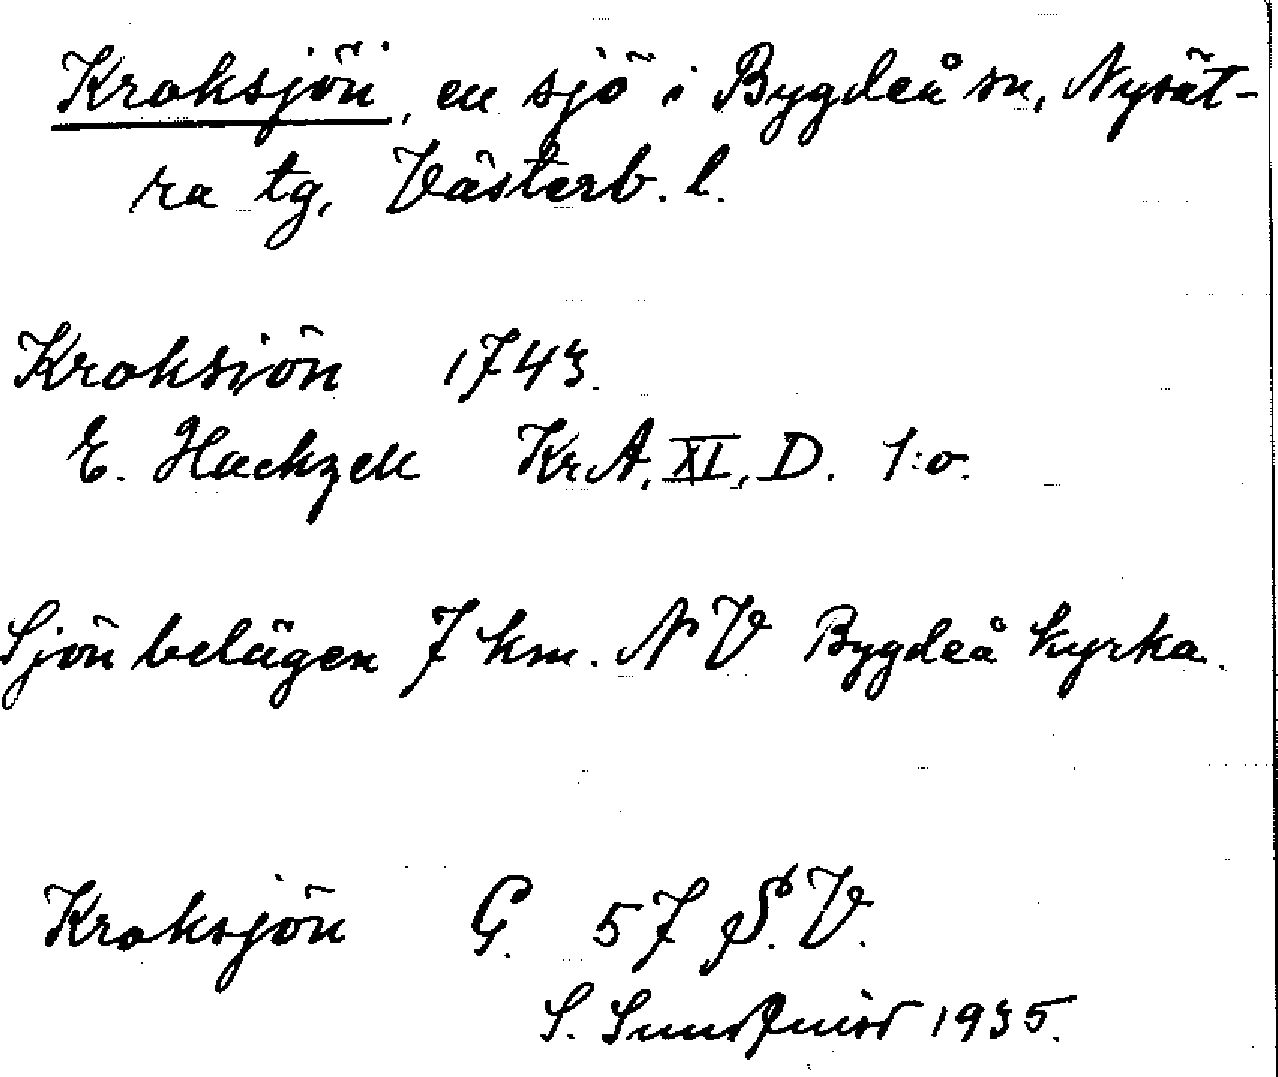 Kroksjön, en sjö i Bygdeå sn, Nysät-
ra tg, Västerb. l.
Kroksiön 1743.
E. Hackzell KrA, XI, D. 1:o.
Sjön belägen 7 km. NV Bygdeå kyrka.
Kroksjön G. 57 S.V.
S. Sundquist 1935.